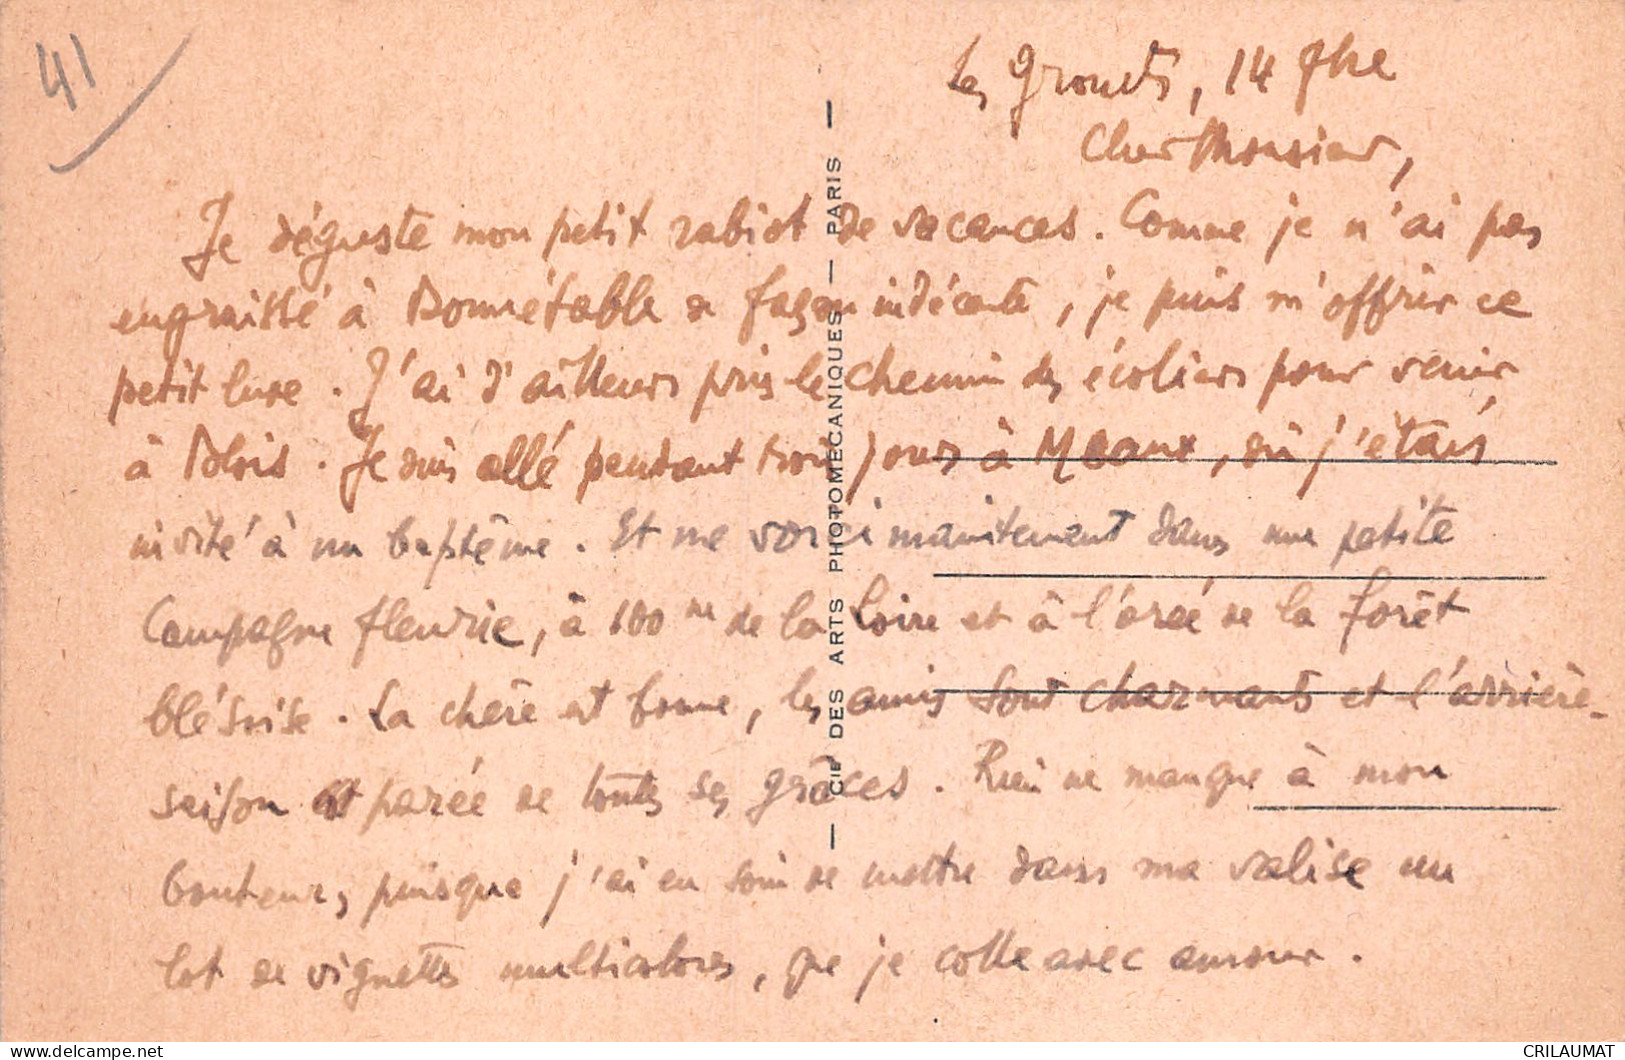 41
Les Grouëts, 14 7bre
Cher Monsieur,
Je déguste mon petit rabiot de vacances. Comme je n'ai pas
engraissé à Bonnétable de façon indécente, je puis m'offrir ce
petit luxe. J'ai d'ailleurs pris le chemin des écoliers pour venir
à Blois. Je suis allé pendant trois jours à Meaux, où j'étais
invité à un baptême. Et me voici maintenant dans une petite
campagne fleurie, à 100 m de la Loire et à l'orée de la forêt
blésoise. La chère est bonne, les amis sont charmants et l'arrière-
saison est parée de toutes ses grâces. Rien ne manque à mon
bonheur, puisque j'ai eu soin de mettre dans ma valise un
lot de vignettes multicolores, que je colle avec amour.
— CIE DES ARTS PHOTOMECANIQUES — PARIS —
CRILAUMAT